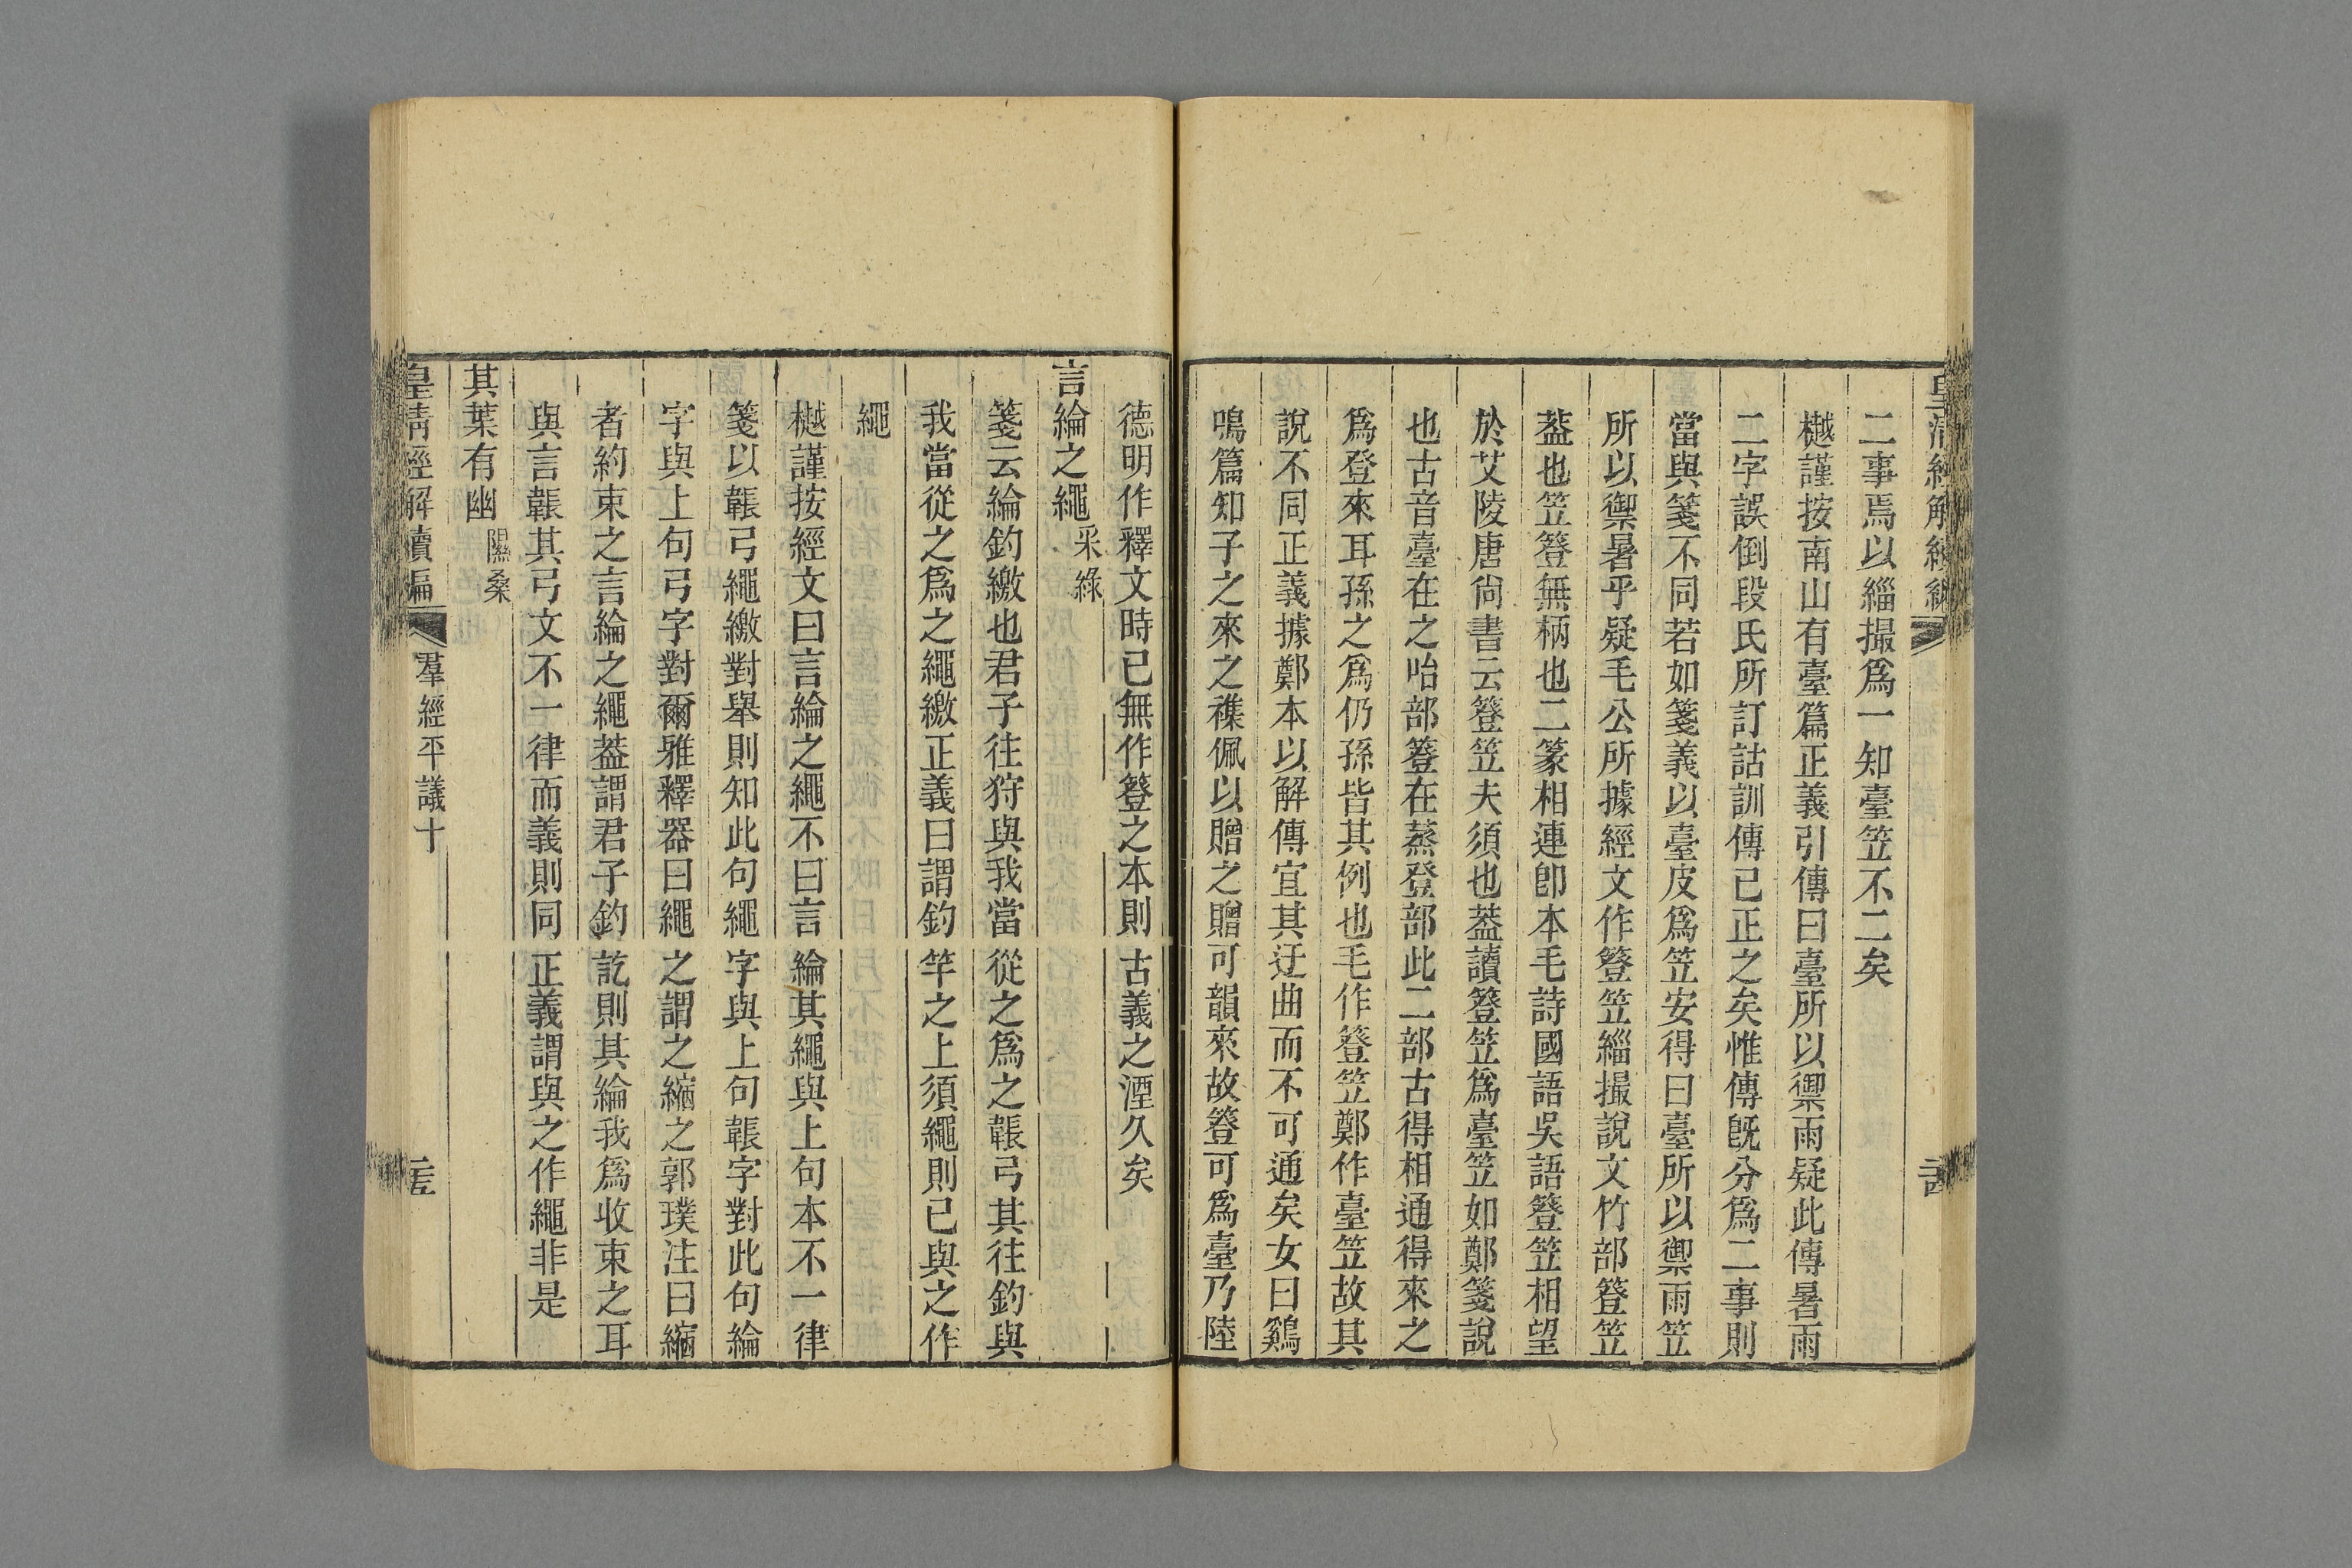 皇清經解續編
二事焉以緇撮爲一知臺笠不二矣
樾謹按南山有臺篇正義引傳曰臺所以禦雨疑此傳暑雨
二字誤倒段氏所訂詁訓傳已正之矣惟傳旣分爲二事則
當與箋不同若如箋義以臺皮爲笠安得曰臺所以禦雨笠
所以禦暑乎疑毛公所據經文作簦笠緇撮說文竹部簦笠
葢也笠簦無柄也二篆相連卽本毛詩國語吳語簦笠相望
於艾陵唐尙書云簦笠夫須也葢讀簦笠爲臺笠如鄭箋說
也古音臺在之咍部簦在蒸登部此二部古得相通得來之
爲登來耳孫之爲仍孫皆其例也毛作簦笠鄭作臺笠故其
說不同正義據鄭本以解傳宜其迂曲而不可通矣女曰鷄
鳴篇知子之來之襍佩以贈之贈可韻來故簦可爲臺乃陸
德明作釋文時已無作簦之本則古義之湮久矣
言綸之繩采綠
箋云綸釣繳也君子往狩與我當從之爲之韔弓其往釣與
我當從之爲之繩繳正義曰謂釣竿之上須繩則已與之作
繩
樾謹按經文曰言綸之繩不曰言綸其繩與上句本不一律
箋以韔弓繩繳對舉則知此句繩字與上句韔字對此句綸
字與上句弓字對爾雅釋器曰繩之謂之縮之郭璞注曰縮
者約束之言綸之繩葢謂君子釣訖則其綸我爲收束之耳
與言韔其弓文不一律而義則同正義謂與之作繩非是
其葉有幽隰桑
皇清經解續編 羣經平議十